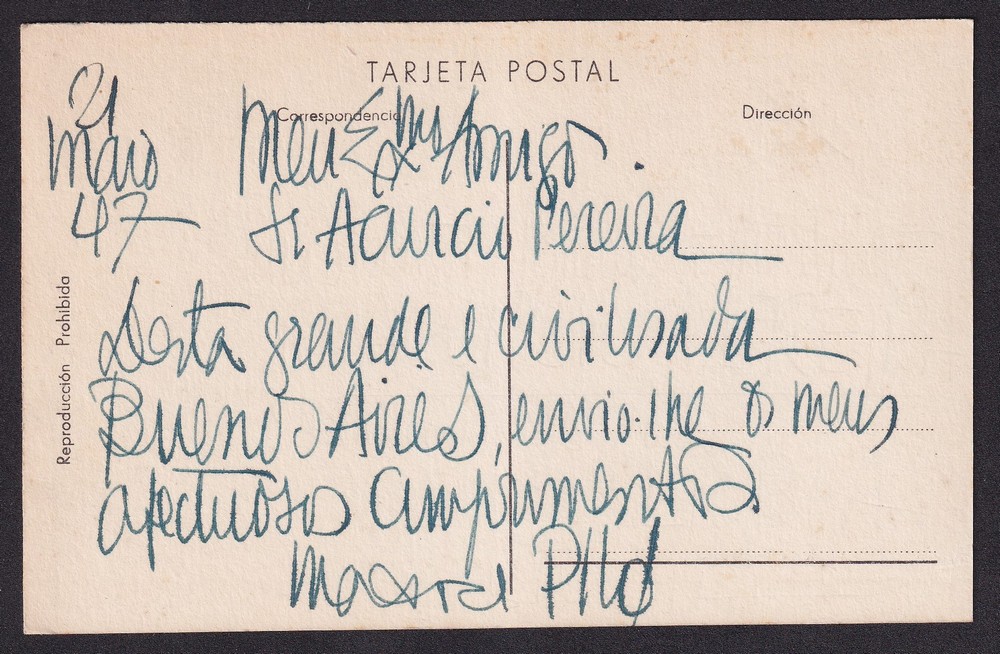 TARJETA POSTAL
Correspondencia
Dirección
21
Maio
47
Meu Exmo Amigo.
Sr Acurcio Pereira
Desta grande e civilisada
Buenos Aires, envio-lhe os meus
afectuosos cumprimentos.
Reproducción Prohibida